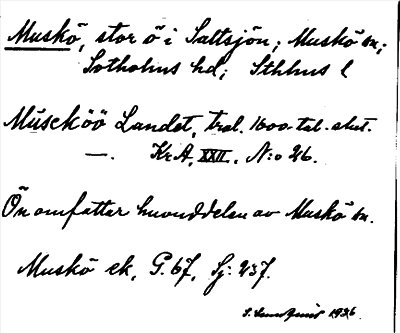 Muskö, stor ö i Saltsjön; Muskö sn;
Sotholms hd; Sthlms l
Müseköö Landet, trol. 1600-tal. slut.
—. KrA, XXII, N:o 26.
Ön omfattar huvuddelen av Muskö sn.
Muskö ek, G. 67, Sj: 237.
S. 1936.